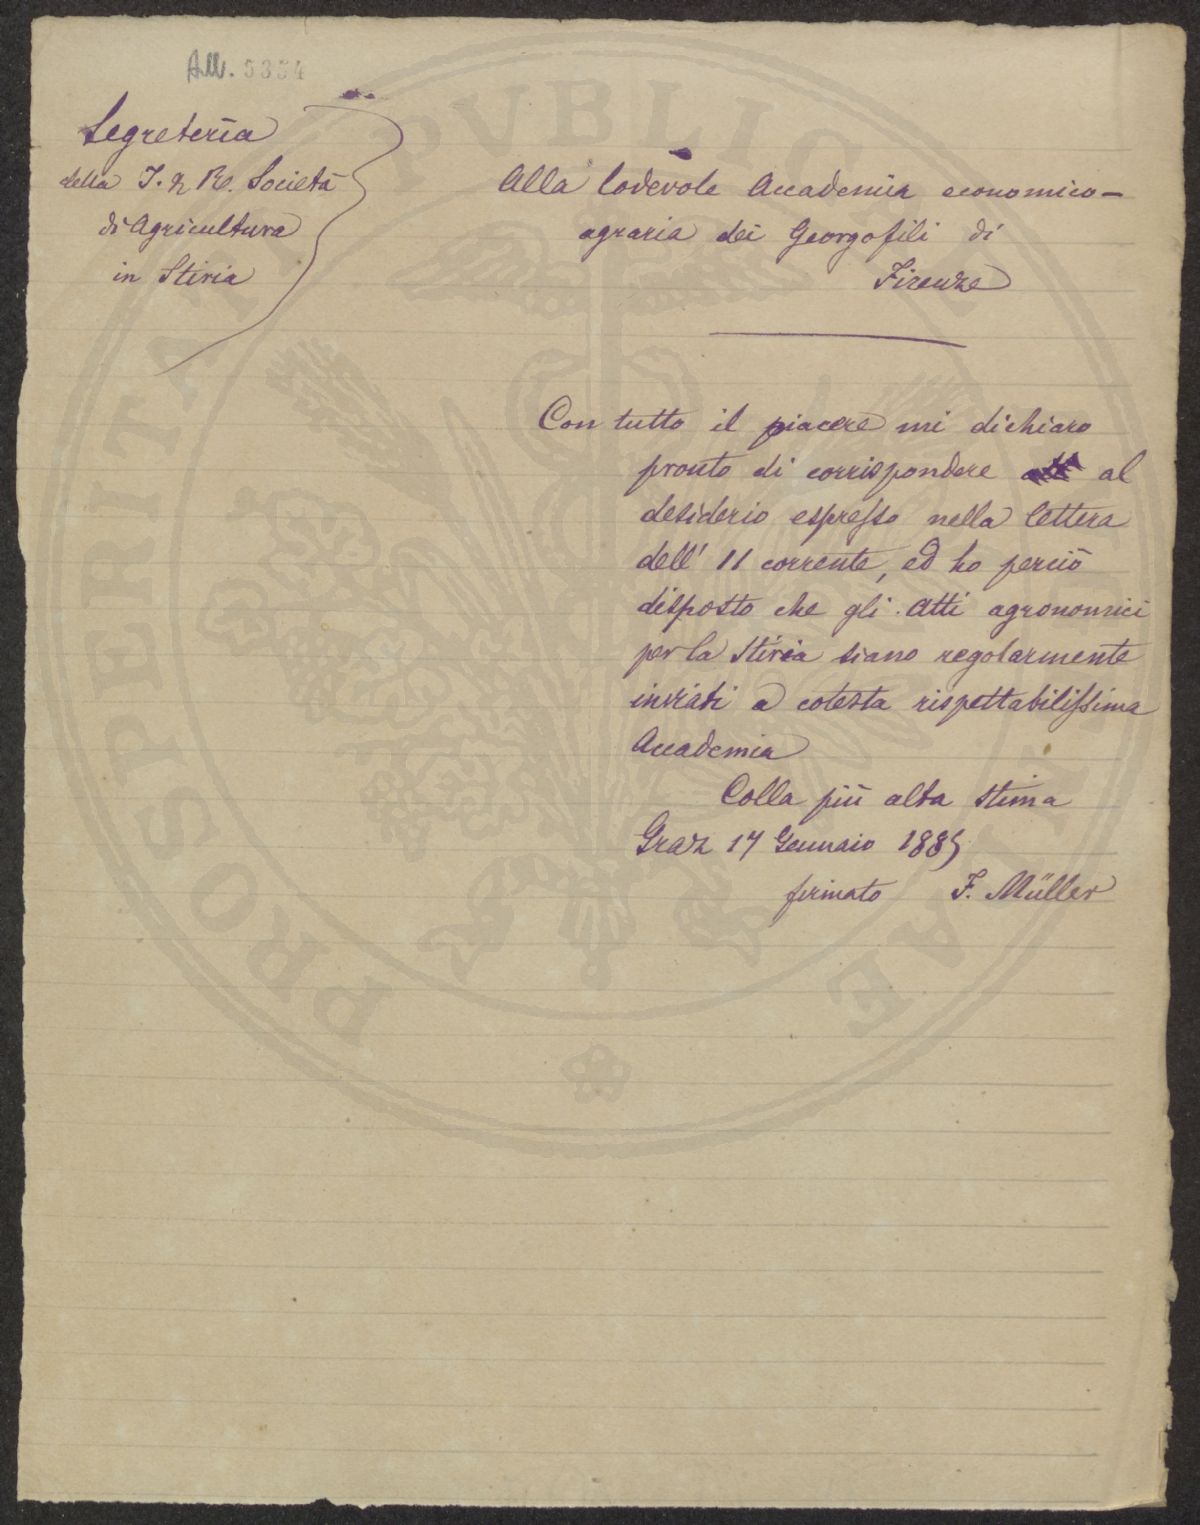 All. 5354
Segreteria
della I. & R. Società
di Agricultura
in Stiria
Alla lodevole Accademia economico-
agraria dei Georgofili di
Firenze
Con tutto il piacere mi dichiaro
pronto di corrispondere al
desiderio espresso nella lettera
dell' 11 corrente, ed ho perciò
disposto che gli Atti agronomici
per la Stiria siano regolarmente
inviati a cotesta rispettabilissima
Accademia
Colla più alta stima
Graz 17 Gennaio 1885
firmato F. Müller
PROSPERITATI PUBLICAE